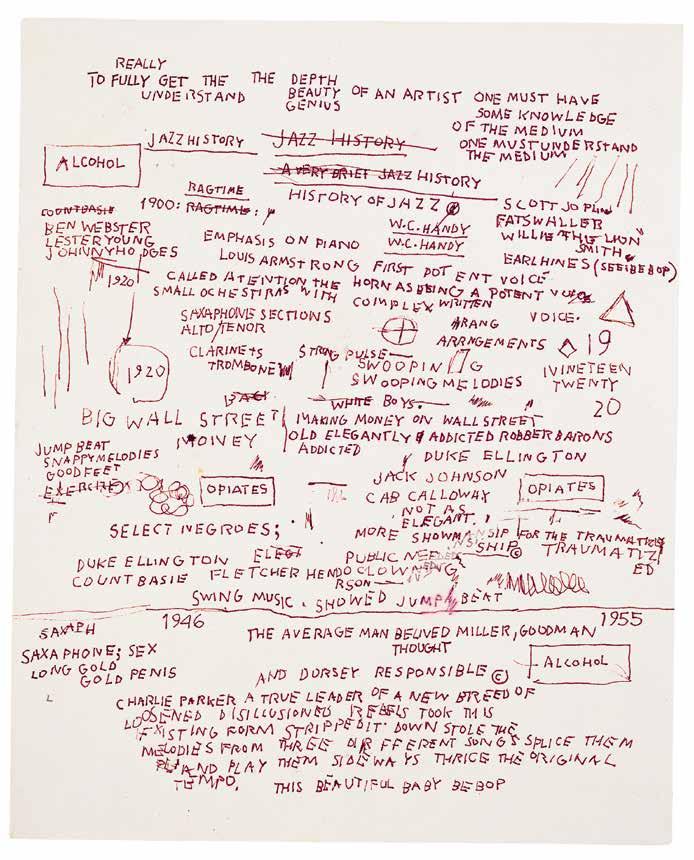 REALLY
TO FULLY GET THE THE DEPTH
UNDERSTAND BEAUTY OF AN ARTIST ONE MUST HAVE
GENIUS SOME KNOWLEDGE
OF THE MEDIUM
ONE MUST UNDERSTAND
THE MEDIUM
JAZZ HISTORY JAZZ HISTORY
ALCOHOL
A VERY BRIEF JAZZ HISTORY
RAGTIME HISTORY OF JAZZ
1900: RAGTIME:
SCOTT JOPLIN
FATS WALLER
WILLIE "THE LION"
SMITH
EARL HINES (SEE BEBOP)
COUNT BASIE
BEN WEBSTER
LESTER YOUNG
JOHNNY HODGES
1920
W.C. HANDY
EMPHASIS ON PIANO W.C. HANDY
LOUIS ARMSTRONG FIRST POTENT VOICE
CALLED ATENTION THE HORN AS BEING A POTENT VOICE
SMALL OCHESTIRAS WITH COMPLEX WRITTEN VOICE.
SAXAPHONE SECTIONS
ALTO/TENOR
ARRANG
ARRNGEMENTS 19
CLARINETS STRONG PULSE
TROMBONE SWOOPING
1920
SWOOPING MELODIES NINETEEN
TWENTY
20
WHITE BOYS.
BIG WALL STREET MAKING MONEY ON WALL STREET
MONEY OLD ELEGANTLY ADDICTED ROBBER BARONS
ADDICTED
DUKE ELLINGTON
JUMP BEAT
SNAPPY MELODIES
GOOD FEET
EXERCIRE
OPIATES
JACK JOHNSON
CAB CALLOWAX
NOT AS
ELEGANT.
OPIATES
SELECT NEGROES; MORE SHOWMANSIP FOR THE TRAUMATIZE
NSHIP © TRAUMATIZ
ED
DUKE ELLINGTON ELEGT PUBLIC NEEDED
COUNT BASIE FLETCHER HENDO CLOWNING
RSON
SWING MUSIC. SHOWED JUMP BEAT
1946 1955
SAXAPH
SAXAPHONE; SEX
LONG GOLD
GOLD PENIS
THE AVERAGE MAN BELIVED MILLER, GOODMAN
THOUGHT
AND DORSEY RESPONSIBLE ©
ALCOHOL
CHARLIE PARKER A TRUE LEADER OF A NEW BREED OF
LOOSENED DISILLUSIONED REBELS TOOK THIS
EXISTING FORM STRIPPED IT DOWN STOLE THE
MELODIES FROM THREE DIFFFERENT SONGS SPLICE THEM
AND PLAY THEM SIDEWAYS THRICE THE ORIGINAL
TEMPO. THIS BEAUTIFUL BABY BEBOP